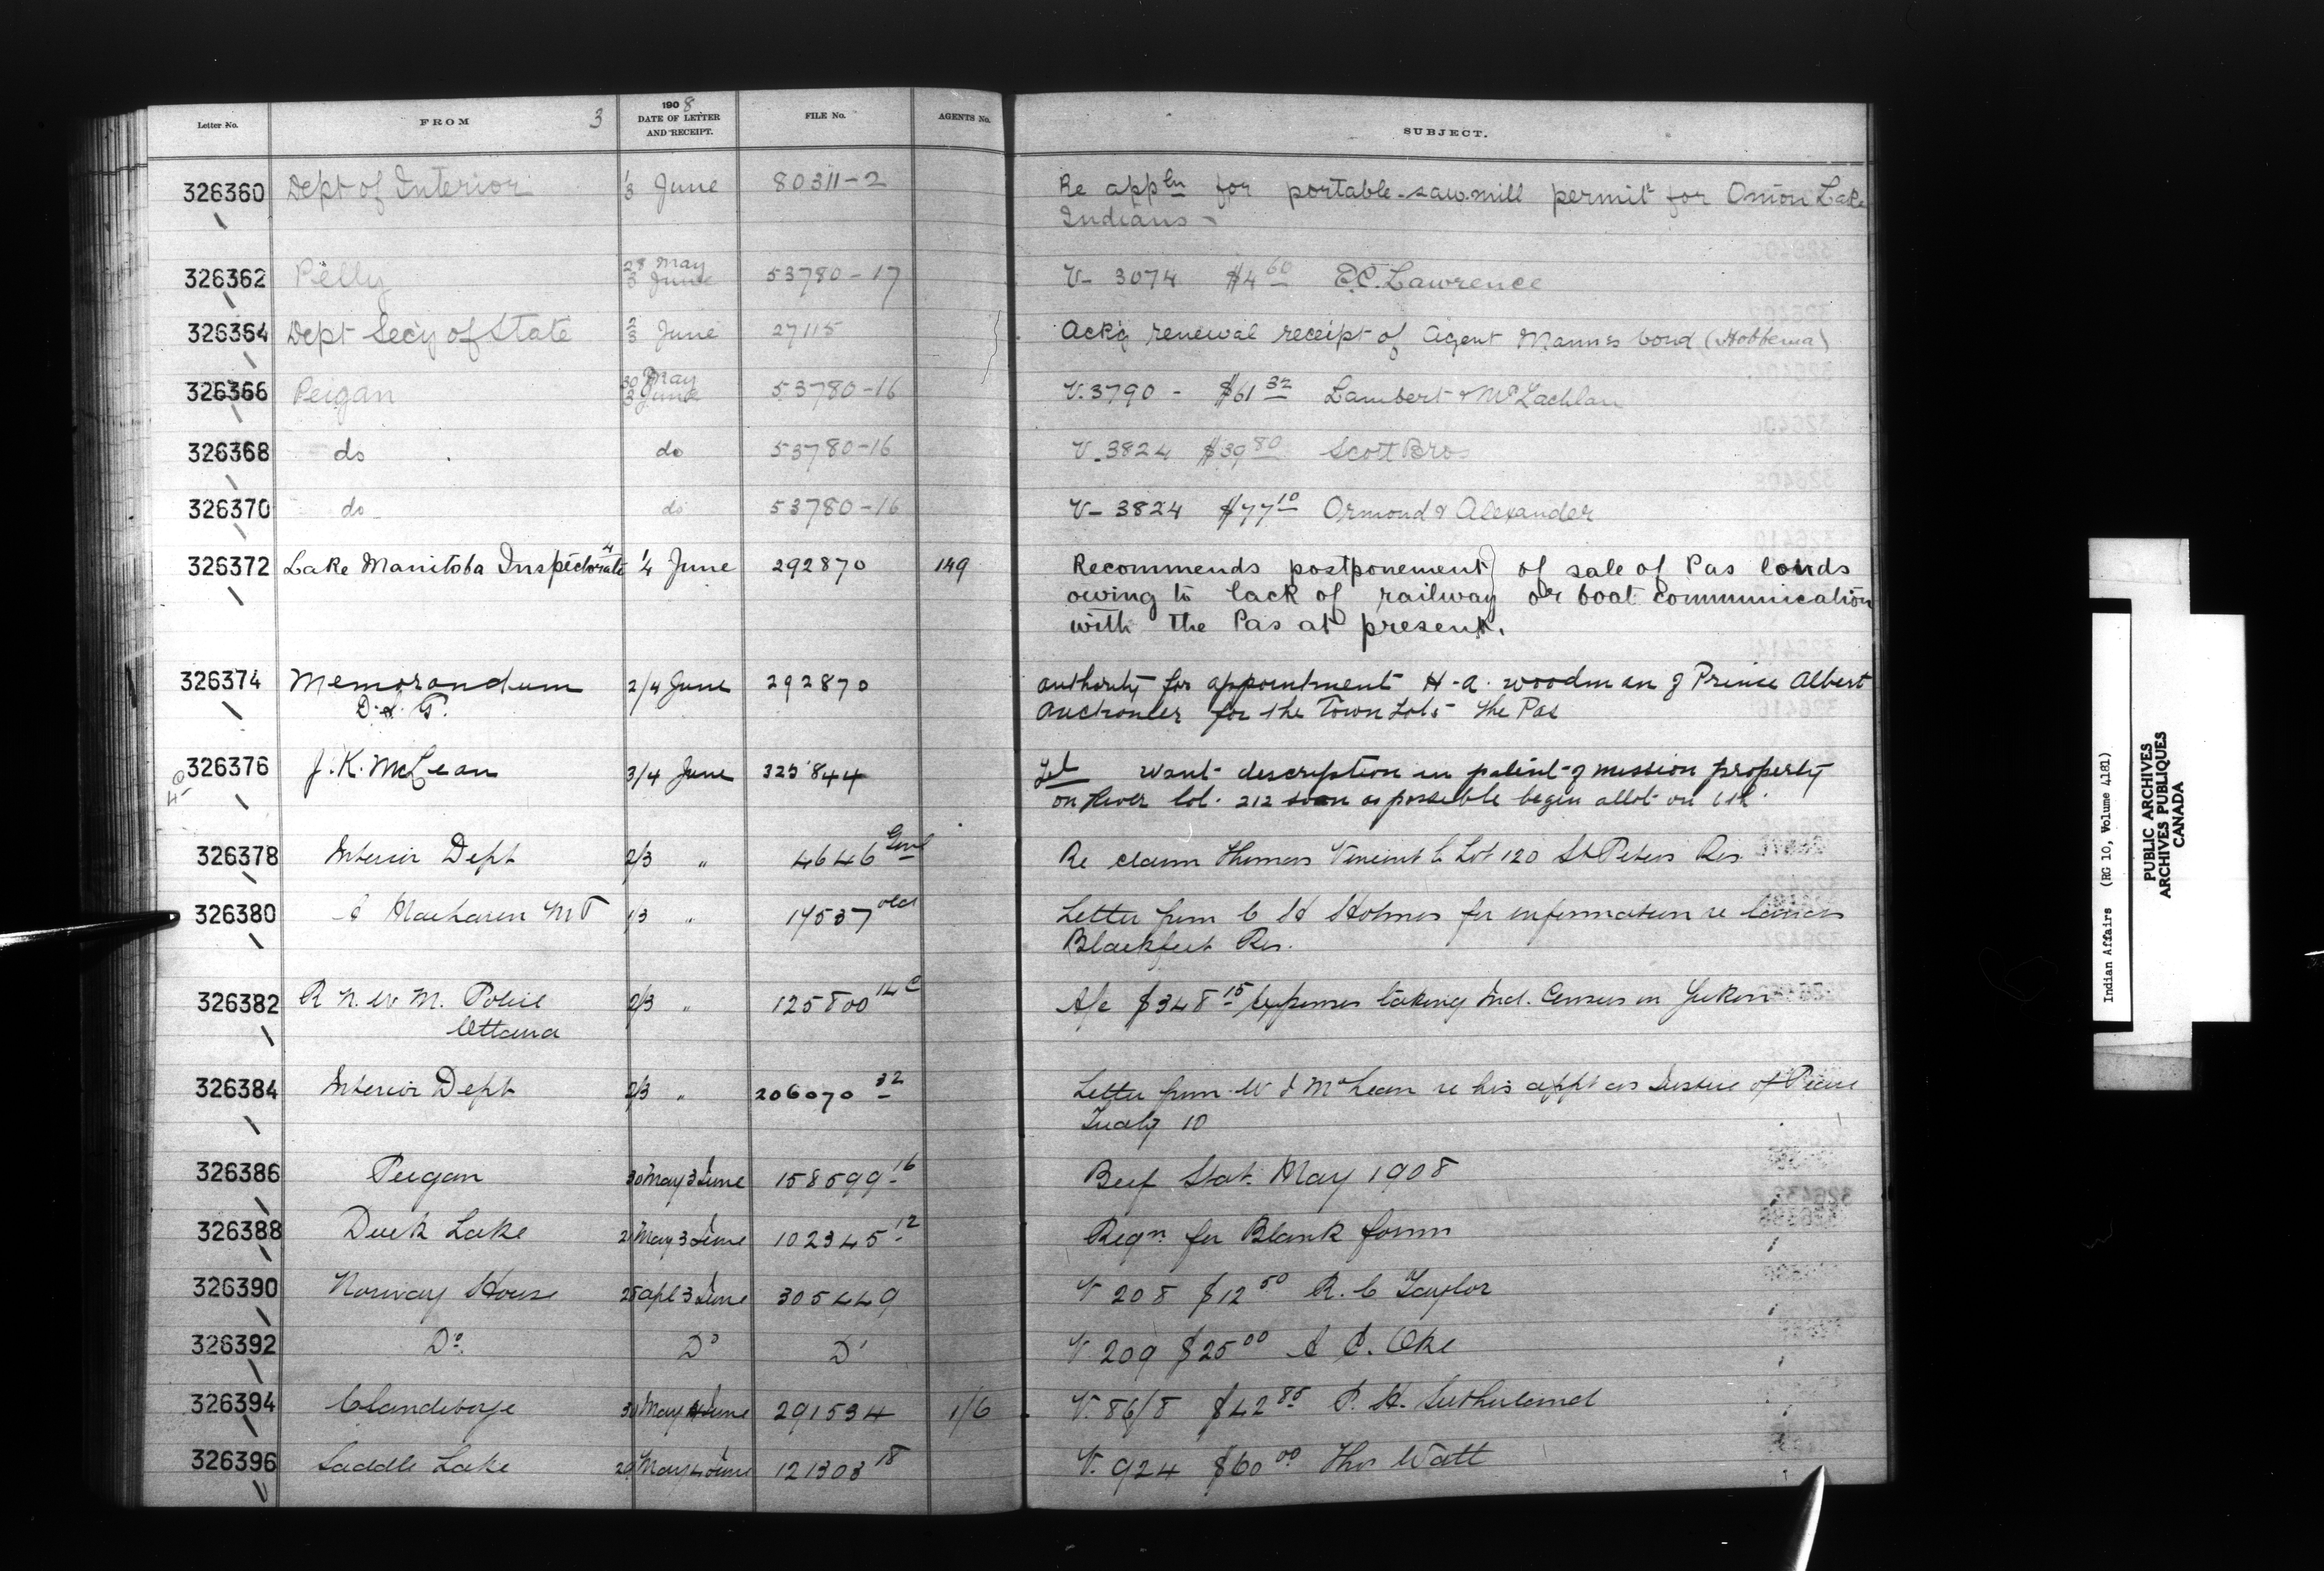 Letter No. FROM 3 1908 DATE OF LETTER AND RECEIPT. FILE No. AGENTS No. SUBJECT.
326360 Dept of Interior 1/3 June 80311-2 Re appln for portable-sawmill permit for Onion Lake
Indians
326362 Pelly 28 May 3 June 53780-17 V- 3074 $4 60 E.C. Lawrence
326364 Dept Secy of State 2/3 June 27115 Ack'g renewal receipt of Agent Mann's bond (Hobbema)
326366 Peigan 30 May 3 June 53780-16 V. 3790 - $61 32 Lambert & McLachlan
326368 do do 53780-16 V_ 3824 $39 80 Scott Bros
326370 do do 53780-16 V- 3824 $77 10 Ormond & Alexander
326372 Lake Manitoba Inspectorate 1/4 June 292870 149 Recommends postponement of sale of Pas lands
owing to lack of railway or boat communication
with the Pas at present.
326374 Memorandum 2/4 June 292870 authority for appointment H-a. Woodman of Prince Albert
D. & T. Auctioneer for the Town Lots The Pas
326376 J. K. McLean 3/4 June 325844 Tel want description in patent of mission property
on River lot. 212 soon as possible begin allot on
326378 Interior Dept 2/3 " 4646 Genl Re claim Thomas Vincent to Lot 120 St Peters Res.
326380 MP 1/3 " 17537 old Letter from C H Holmes for information re lands
Blackfeet Res.
326382 R. N. W. M. Police 2/3 " 125800 14 C A/c $348 15 Expenses taking Ind. Census in Yukon
Ottawa
326384 Interior Dept 2/3 " 206070 32 Letter from W J McLean re his appt as Justice of Peace
Treaty 10
326386 Peigan 30 May 3 June 158599-16 Beef Stat. May 1908
326388 Duck Lake 2 May 3 June 102345-12 Reqn for Blank forms
326390 Norway House 25 Apl 3 June 305449 V 208 $12 50 R. C Taylor
326392 Do. Do Do V 209 $25 00 A C. Oke
326394 Clandeboye 30 May 4 June 291534 1/6 V. 86/8 $42 85 P. H. Sutherland
326396 Saddle Lake 20 May 4 June 121303 18 V. 924 $60 00 Thos Watt
Indian Affairs (RG 10, Volume 4181)
PUBLIC ARCHIVES
ARCHIVES PUBLIQUES
CANADA